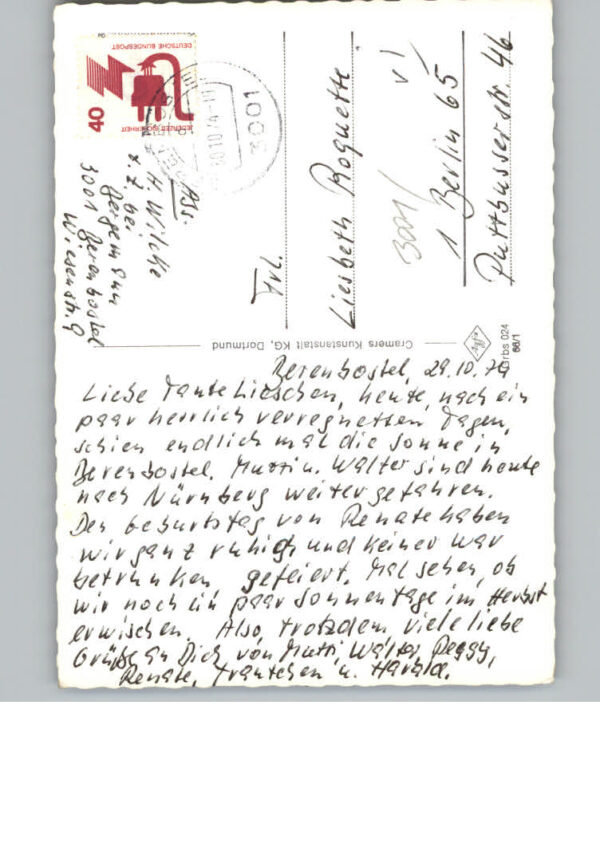 Berenbostel, 29.10.74
Liebe Tante Lieschen, heute, nach ein
paar herrlich verregneten Tagen,
schien endlich mal die Sonne in
Berenbostel. Mutti u. Walter sind heute
nach Nürnberg weitergefahren.
Den Geburtstag von Renate haben
wir ganz ruhig und keiner war
betrunken gefeiert. Mal sehen, ob
wir noch ein paar Sonnentage im Herbst
erwischen. Also, trotzdem viele liebe
Grüße an Dich von Mutti, Walter, Peggy,
Renate, Trautchen u. Harald.
Cramers Kunstanstalt KG, Dortmund
Grbs 024
66/1
DEUTSCHE BUNDESPOST
JEDERZEIT SICHERHEIT
40
3001
30.10.74
Abs.
H. Wilcke
z. Z. bei
Bergemann
3001 Berenbostel
Wiesenstr. 9
Frl.
Liesbeth Roquette
3001/
1 Berlin 65
Puttbusser Str. 46